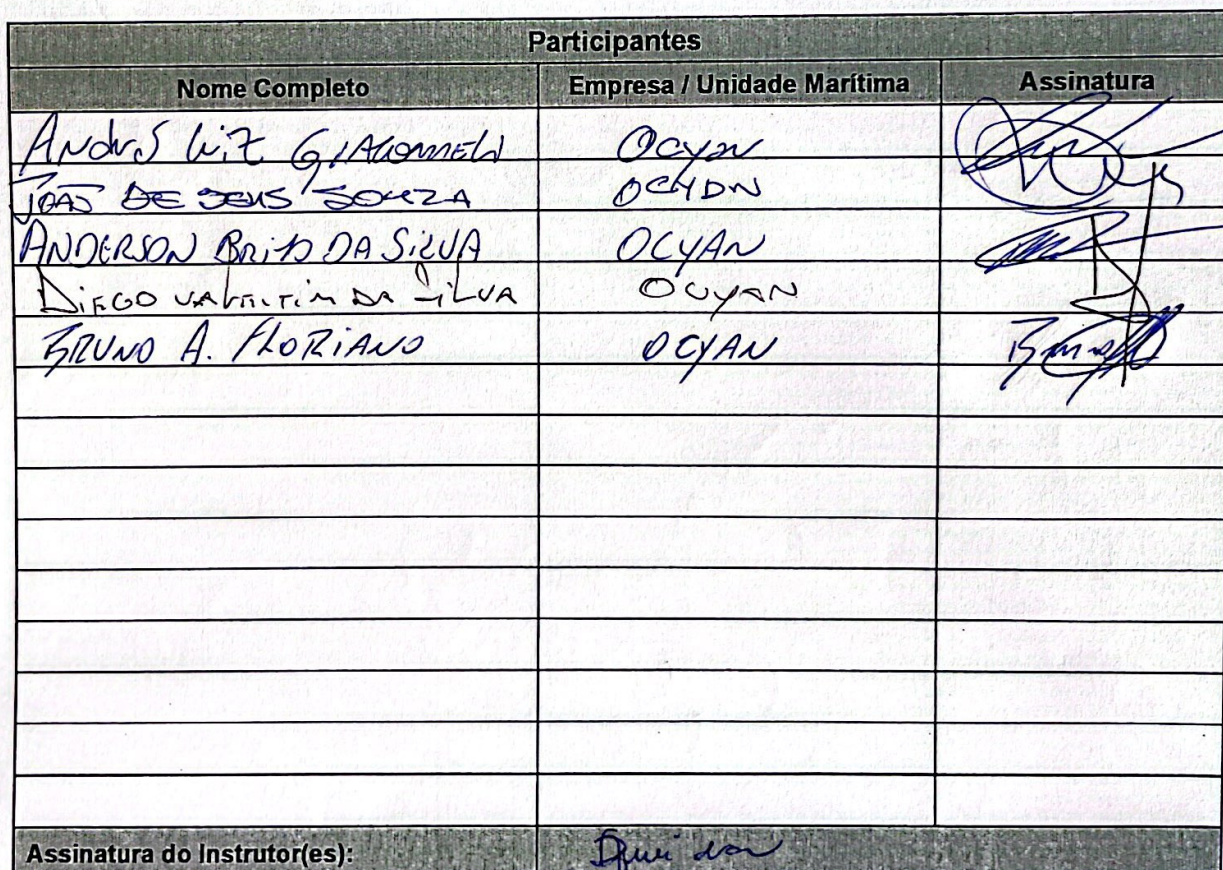 Participantes
Nome Completo Empresa / Unidade Marítima Assinatura
André Luiz Ocyan
JOÃO DE JESUS SOUZA OCYAN
ANDERSON BRITO DA SILVA OCYAN
DIEGO VALENTIM DA SILVA OCYAN
BRUNO A. FLORIANO OCYAN
Assinatura do Instrutor(es):